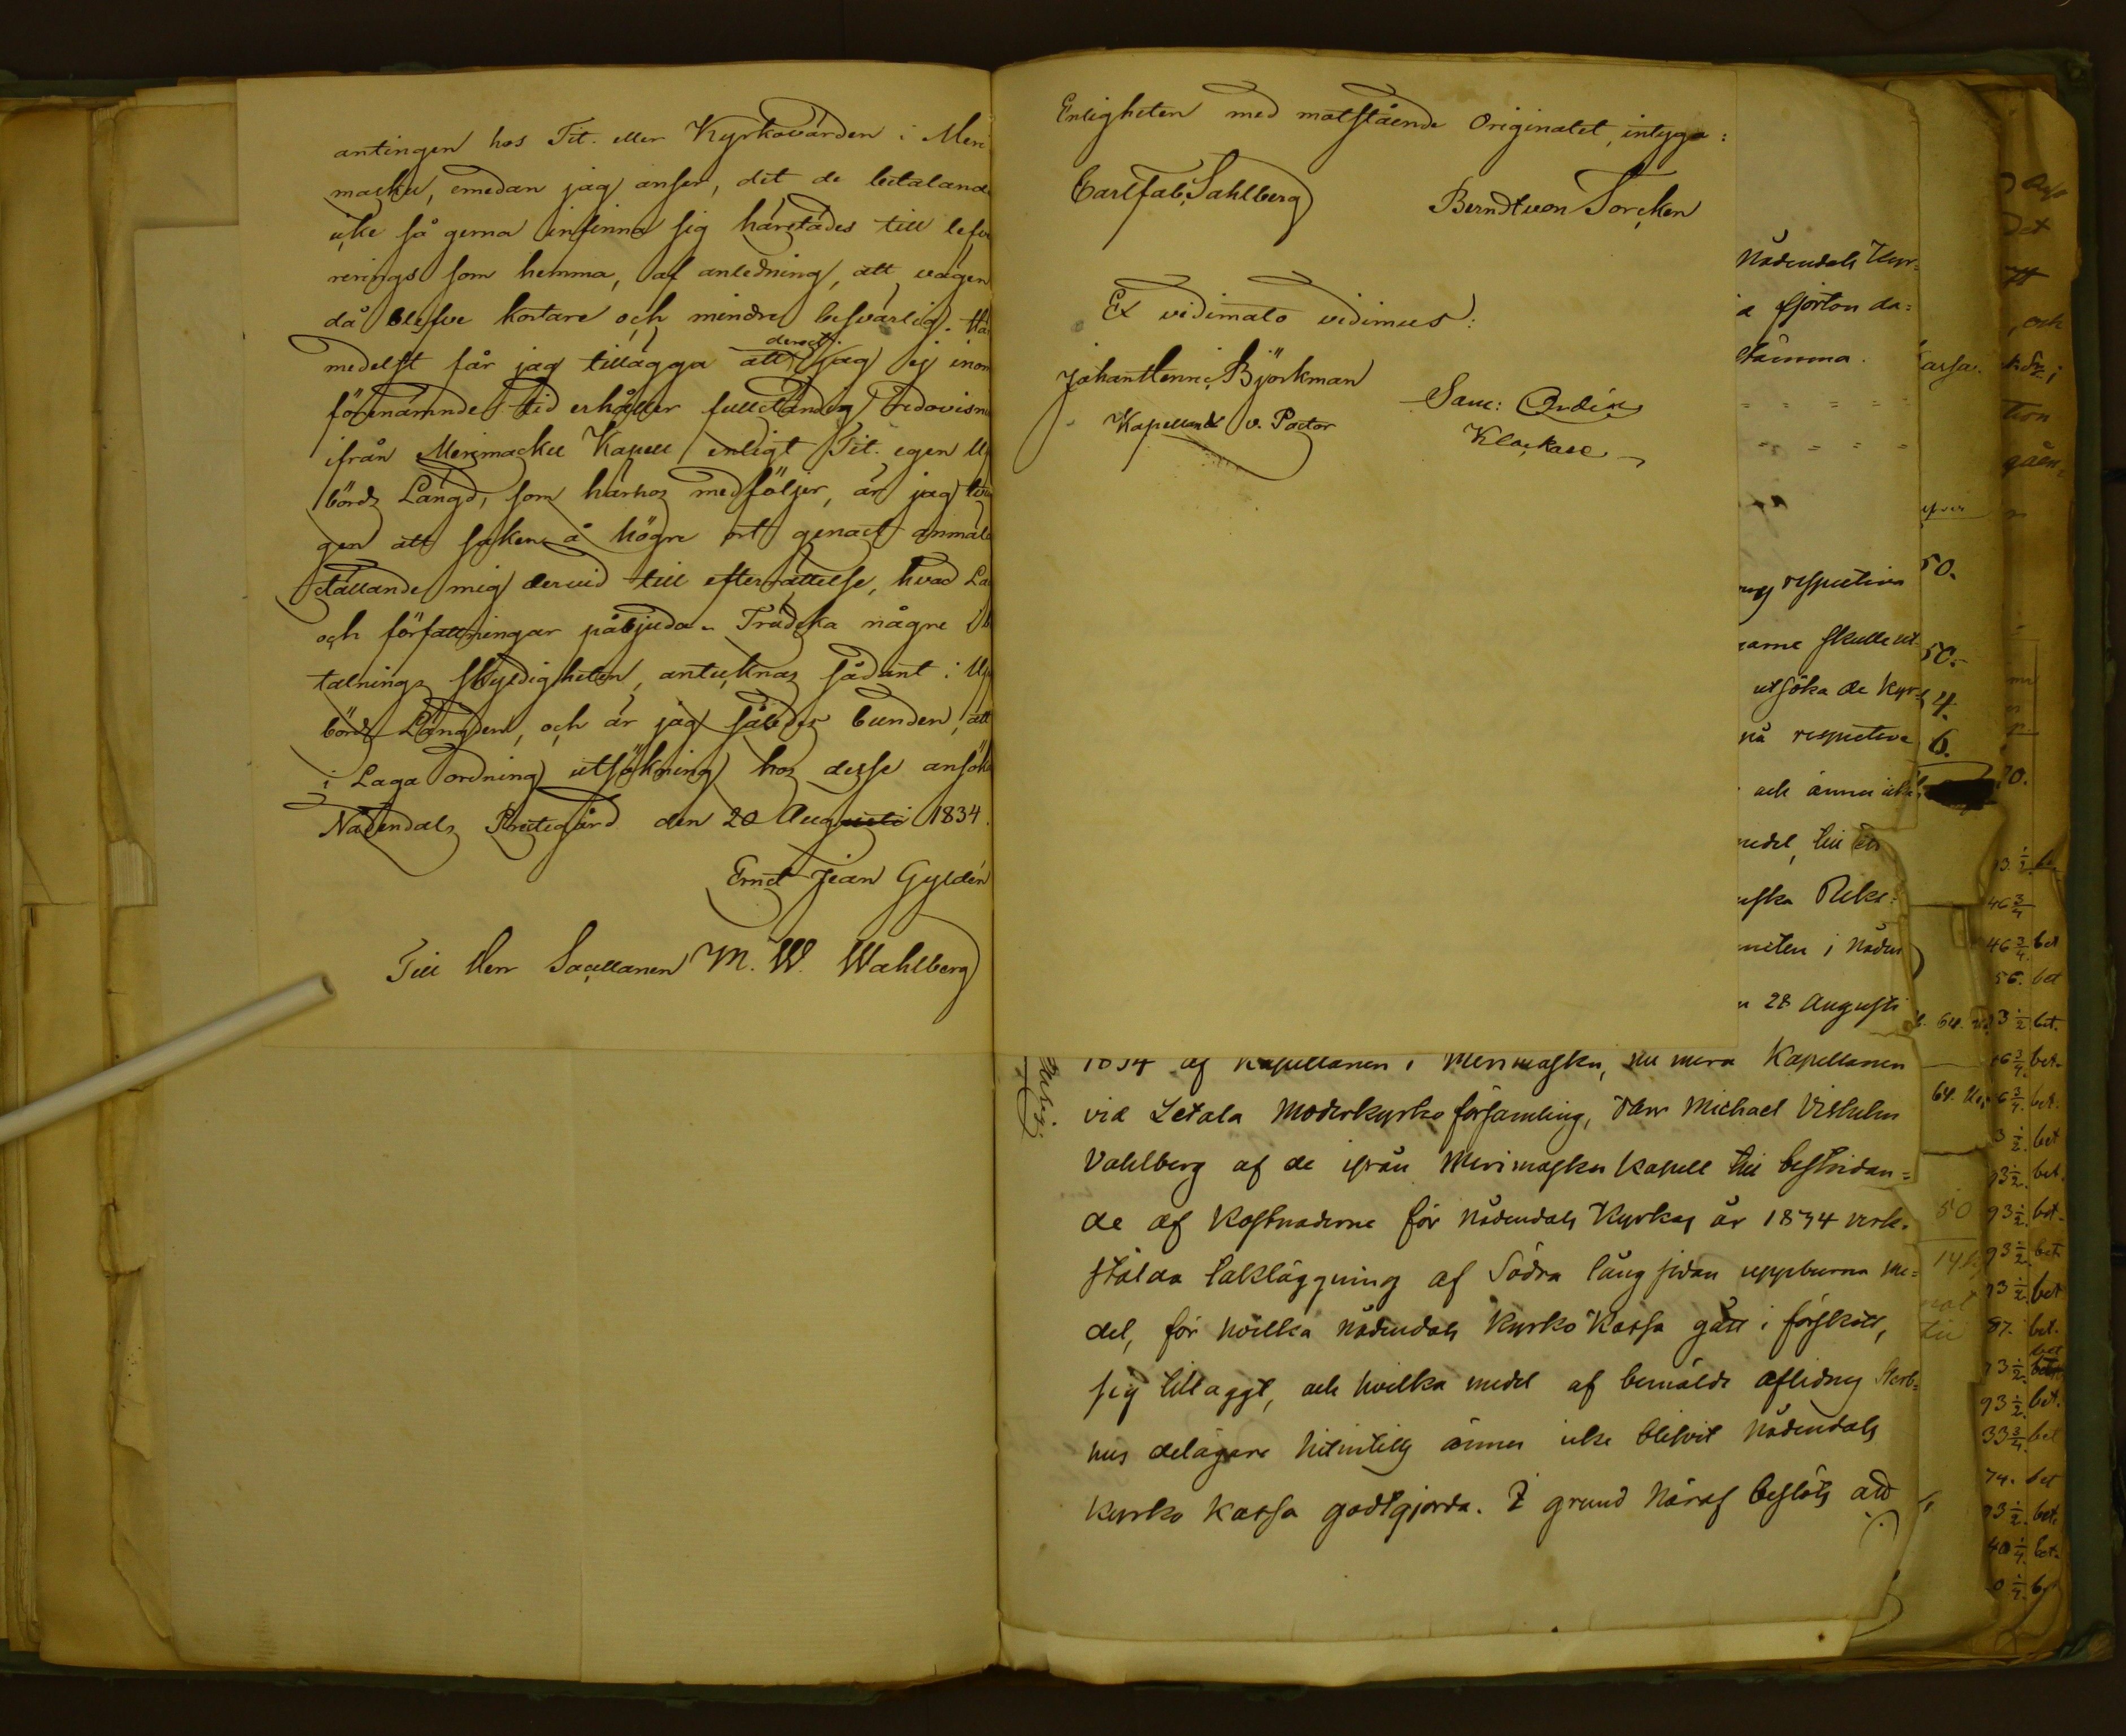 antingen hos Tit. eller Kyrkovärden i Meri
masku, emedan jag anser, det de betalande
icke så gerna infinna sig härstädes till lefve
rerings som hemma, af anledning, att vägen
då blefve kortare och mindre besvärlig. Här
medelst får jag tillägga att, derest jag ej inom
förenämnde tid erhåller fullständig redovisni
ifrån Merimasku Kapell enligt Tit. egen Up
börds Längd, som härhos medföljer, är jag tvun
gen att saken å högre ort genast anmäla
ställande mig dervid till efterrättelse, hvad La
och författningar påbjuda. Tredska några i be
talnings skyldigheten, antecknas sådant i Up
börds Längden, och är jag således bunden, att
i Laga ordning utsökning hos desse ansöka
Nådendals Prestegård den 20 Augusti 1834.
Ernst Jean Gyldén
Till Herr Sacellanen M. W. Wahlberg
Enligheten med motstående Originalet, intyga:
Carl Fab. Sahlberg Berndt von Torcken
Ex vidimato vidimus:
Johan Henric Björkman
Kapellan v. Pastor
Sam: Ordin
Klockare
Nådendals Kyr=
a fjorton da=
stämma.
respective
arne skulle ut
utsöka de Kyr=
på respective
och ännu icke
medel, till
Reka=
i Nåden
n 28 Augusti
1834 af Kapellanen i Merimasku, nu mera Kapellanen
vid Letala Moderkyrko församling, Herr Michael Vilhelm
Vahlberg af de ifrån Merimasku Kapell till bestridan=
de af Kostnaderne för Nådendals Kyrkas år 1834 verk=
stälda takläggning af Södra långsidan uppburna me=
del, för hvilka Nådendals Kyrko Kassa gått i förskott,
sig tillaggt, och hvilka medel af bemälde aflidnes Sterb=
hus delägare hitintills ännu icke blifvit Nådendals
Kyrko Kassa godtgjorda. I grund häraf beslöts att
50.
50.
4.
6.
70.
46 3/4
46 3/4 bet
56. bet
3 1/2 bet.
6 3/4 bet.
6 3/4 bet.
3 1/2 bet
93 1/2 bet.
93 1/2 bet.
93 1/2 bet
93 1/2 bet
87. bet.
93 1/2 bet
93 1/2 bet.
33 3/4 bet
74. bet
93 1/2 bet.
40 1/4 bet.